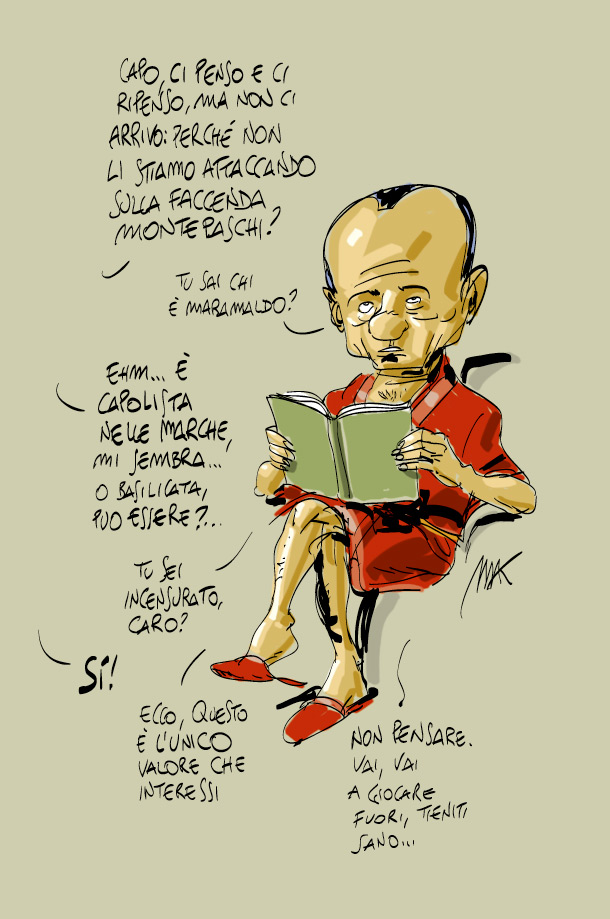 CAPO, CI PENSO E CI
RIPENSO, MA NON CI
ARRIVO: PERCHÉ NON
LI STIAMO ATTACCANDO
SULLA FACCENDA
MONTEPASCHI?
TU SAI CHI
È MARAMALDO?
EHM... È
CAPOLISTA
NELLE MARCHE,
MI SEMBRA...
O BASILICATA,
PUÒ ESSERE?...
TU SEI
INCENSURATO,
CARO?
SÌ!
ECCO, QUESTO
È L'UNICO
VALORE CHE
INTERESSI
NON PENSARE.
VAI, VAI
A GIOCARE
FUORI, TIENITI
SANO...
MAK